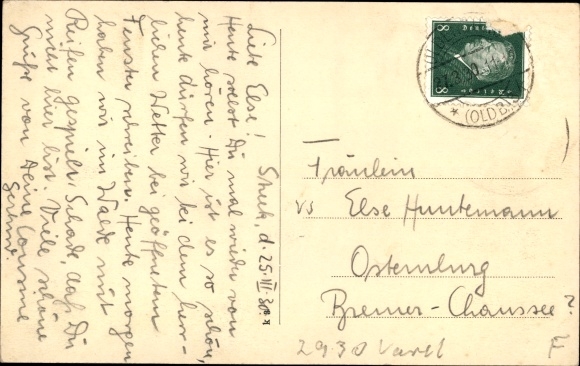 d. 25. III. 30.
Liebe Else!
Heute sollst Du mal wieder von
mir hören. Hier ist es so schön,
heute dürfen wir bei dem herr-
lichen Wetter bei geöffneten
Fenster schreiben. Heute morgen
haben wir im Walde mit
Reifen gespielt. Schade, daß Du
nicht hier bist. Viele schöne
Grüße von Deine Cousine
Gertrud
8 8
(OLDB)
Fräulein
vs Else Huntemann
Osternburg
Bremer-Chaussee ?
2930 Varel F